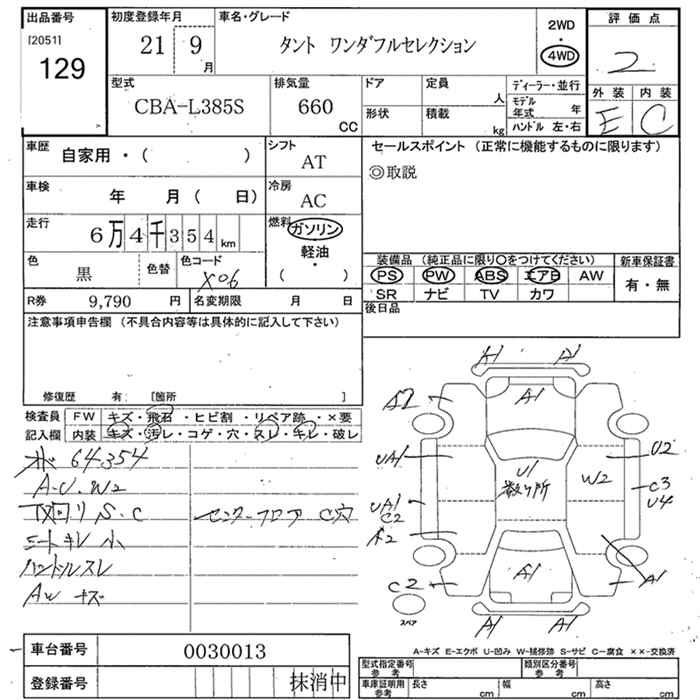 出品番号
[2051]
129
初度登録年月
21 9
月
車名・グレード
タント ワンダフルセレクション
2WD
・
4WD
評価点
2
型式
CBA-L385S
排気量
660
CC
ドア
形状
定員
人
積載
kg
ディーラー・並行
モデル年式 年
ハンドル 左・右
外装 内装
E C
車歴
自家用・( )
シフト
AT
セールスポイント (正常に機能するものに限ります)
◎取説
車検
年 月( 日)
冷房
AC
走行
6万4千354km
燃料
ガソリン
軽油・
( )
色
黒
色替
色コード
X06
装備品 (純正品に限り○をつけてください)
PS PW ABS エアB AW
SR ナビ TV カワ
新車保証書
有・無
R券 9,790 円
名変期限 月 日
後日品
注意事項申告欄 (不具合内容等は具体的に記入して下さい)
修復歴 有: [箇所 ]
検査員
記入欄
FW キズ・飛石・ヒビ割・リペア跡・×要
内装 キズ・汚レ・コゲ・穴・スレ・キレ・破レ
64354
A・U・W2
下回り S・C
センターフロア C穴
シートキレ小
ハンドルスレ
AW キズ
A1 A1
A2
A1
UA1
U2
U1
散り所
W2
C3
U4
UA1
C2
A2
A1
A1
C2
スペア
A1 A1
A-キズ E-エクボ U-凹み W-補修跡 S-サビ C-腐食 ××-交換済
車台番号 0030013
登録番号 抹消中
型式指定番号
参考
類別区分番号
参考
車庫証明用
参考
長さ cm
幅 cm
高さ cm